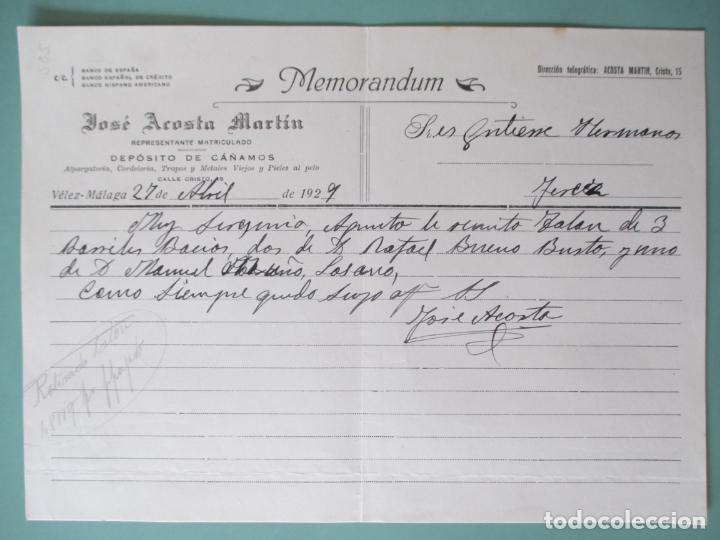 C.C.
BANCO DE ESPAÑA
BANCO ESPAÑOL DE CRÉDITO
BANCO HISPANO AMERICANO
Memorandum
Dirección telegráfica: ACOSTA MARTIN, Cristo, 15
José Acosta Martín
REPRESENTANTE MATRICULADO
DEPÓSITO DE CÁÑAMOS
Alpargatería, Cordelería, Trapos y Metales Viejos y Pieles al pelo
CALLE CRISTO, 15
Sres Gutierre Hermanos
Vélez-Málaga 27 de Abril de 1929
Jerez
Muy Sres mio, Adjunto le remito Talon de 3
Barriles Bacios, dos de D. Rafael Bueno Busto, y uno
de D. Manuel
Como siempre quedo suyo
José Acosta
Retirado talón
todocoleccion.net